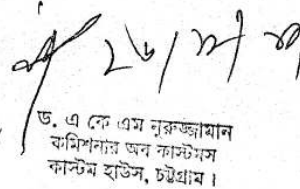 ড. এ কে এম নুরুজ্জামান
কমিশনার অব কাস্টমস
কাস্টম হাউস, চট্টগ্রাম।